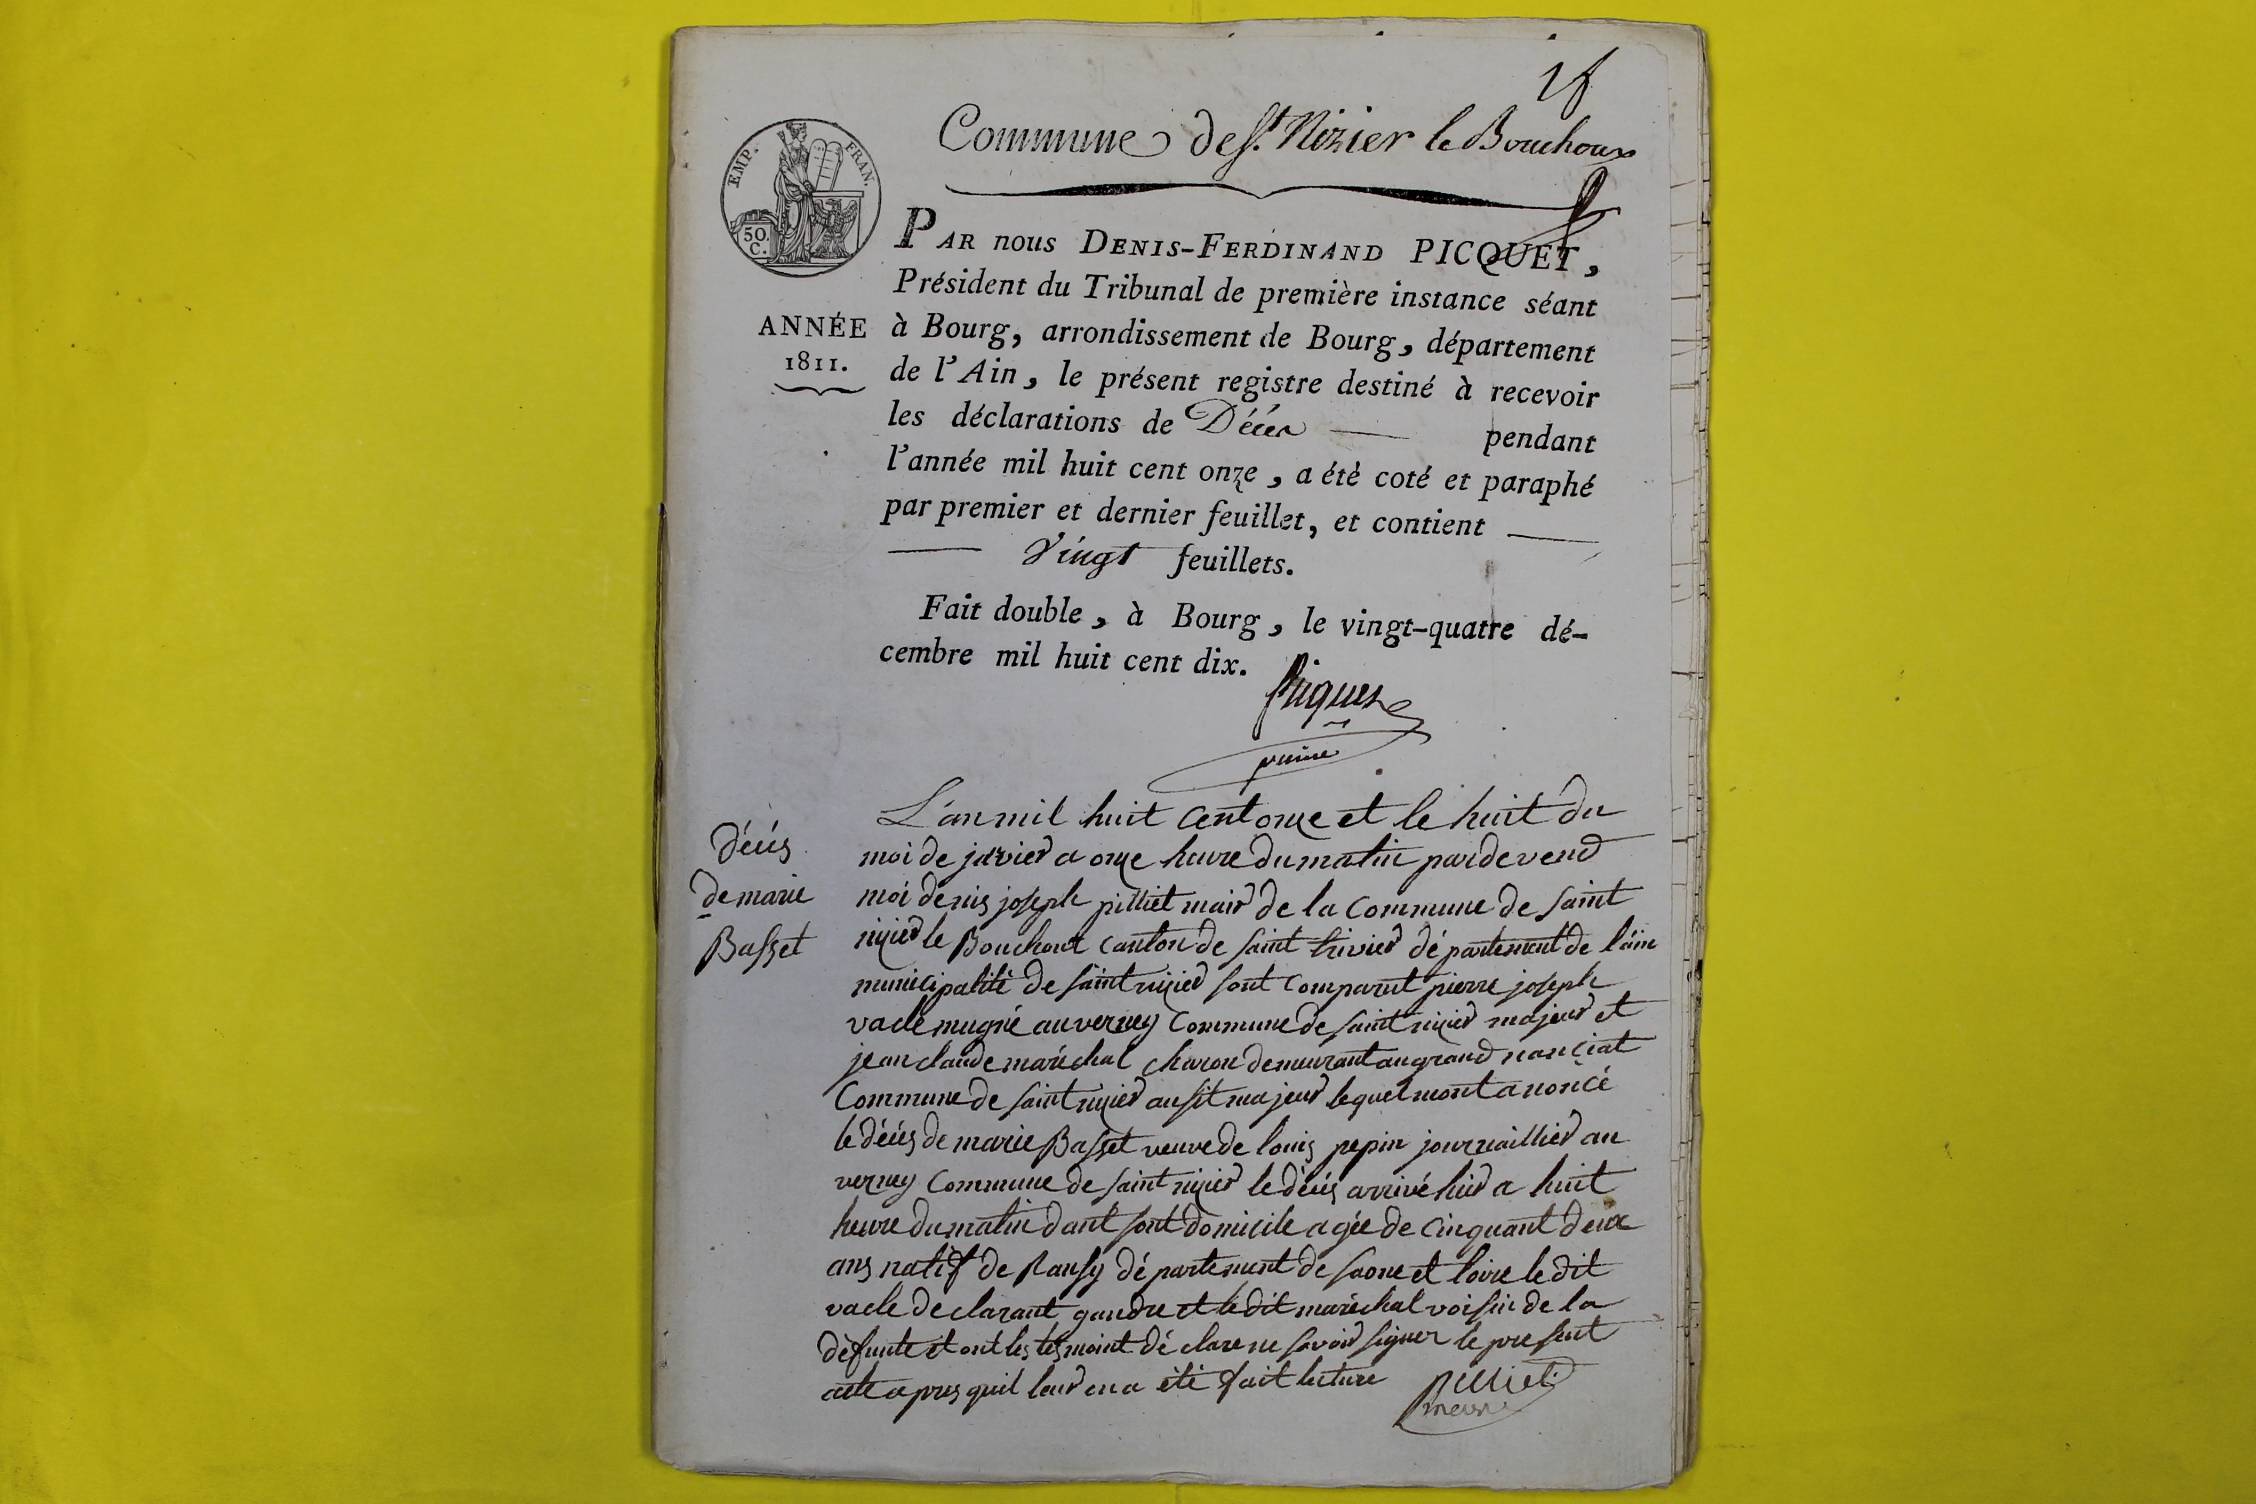 1f
Commune de St. Nizier le Bouchoux
EMP. FRAN.
50.
C.
ANNÉE
1811.
PAR nous DENIS-FERDINAND PICQUET,
Président du Tribunal de première instance séant
à Bourg, arrondissement de Bourg, département
de l'Ain, le présent registre destiné à recevoir
les déclarations de Décès pendant
l'année mil huit cent onze, a été coté et paraphé
par premier et dernier feuillet, et contient
Vingt feuillets.
Fait double, à Bourg, le vingt-quatre dé-
cembre mil huit cent dix.
Picquet
Décés
de marie
Basset
L'an mil huit cent onze et le huit du
moi de javier a onze heure du matin par devend
moi denis joseph pilliet mair de la Commune de saint
nizier le Bouchout canton de saint trivier département de l'ain
municipalité de saint nizier sont comparut pierre joseph
vacle mugné au verney Commune de saint nizier majeur et
jean claude maréchal charon demeurant au grand nanciat
Commune de saint nizier ausit majeur lequel mont anoncé
le décés de marie Basset veuve de louis pepin journaillier au
verney Commune de saint nizier le décés arrivé hier a huit
heure du matin dant sont domicile agée de cinquant deux
ans natif de Ransy département de saone et loire le dit
vacle declarant gandre et le dit maréchal voisin de la
défunte et ont les tesmoint déclare ne savoir signer le present
acte apres quil leur en a été fait lecture
pilliet